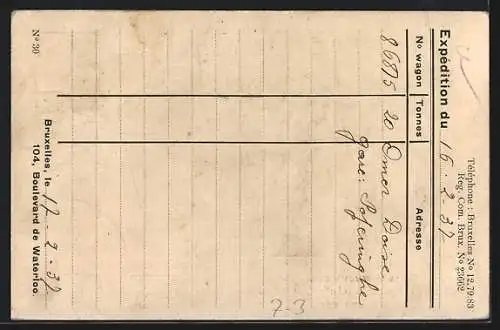 Téléphone : Bruxelles No 12.79.83
Reg. Com. Brux. No 23662
Expédition du 16 - 2 - 37
No wagon Tonnes Adresse
86815 20 Omer Doise
gare: Poperinghe
Bruxelles, le 17 - 2 - 37
104, Boulevard de Waterloo.
No 30
7-3